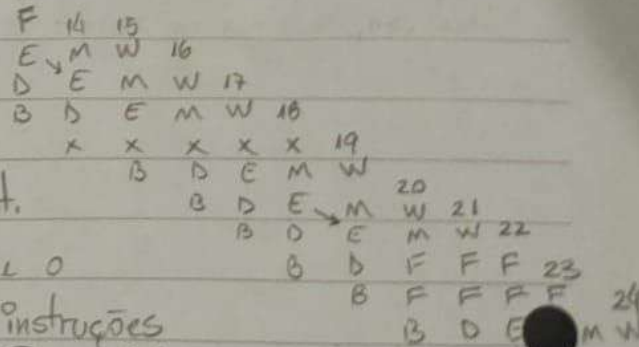 F 14 15
E M W 16
D E M W 17
B D E M W 18
x x x x x 19
B D E M W
20
t. B D E M W 21
B D E M W 22
L O B D F F F 23
B F F F F 24
instruções B D E M W